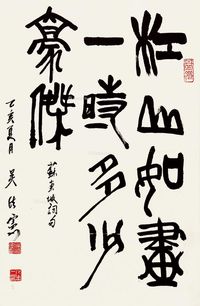 江山如畫
一時多少
豪傑
蘇東坡詞句
乙亥夏月